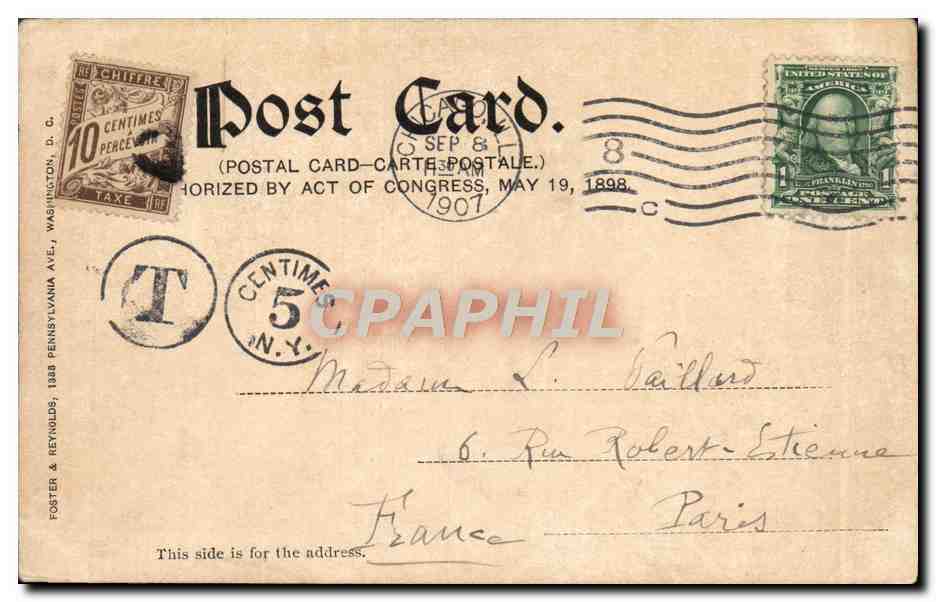 CHIFFRE
RF
POSTES
10 CENTIMES
À
PERCEVOIR
TAXE
RF
Post Card.
(POSTAL CARD—CARTE POSTALE.)
HORIZED BY ACT OF CONGRESS, MAY 19, 1898.
CHICAGO, ILL
SEP 8
30 AM
1907
8
C
UNITED STATES OF
AMERICA
FRANKLIN
1 POSTAGE 1
ONE CENT
T
CENTIMES
5
N.Y.
CPAPHIL
Madame L. Vaillard
6. Rue Robert-Etienne
Paris
France
This side is for the address.
FOSTER & REYNOLDS, 1333 PENNSYLVANIA AVE., WASHINGTON, D. C.